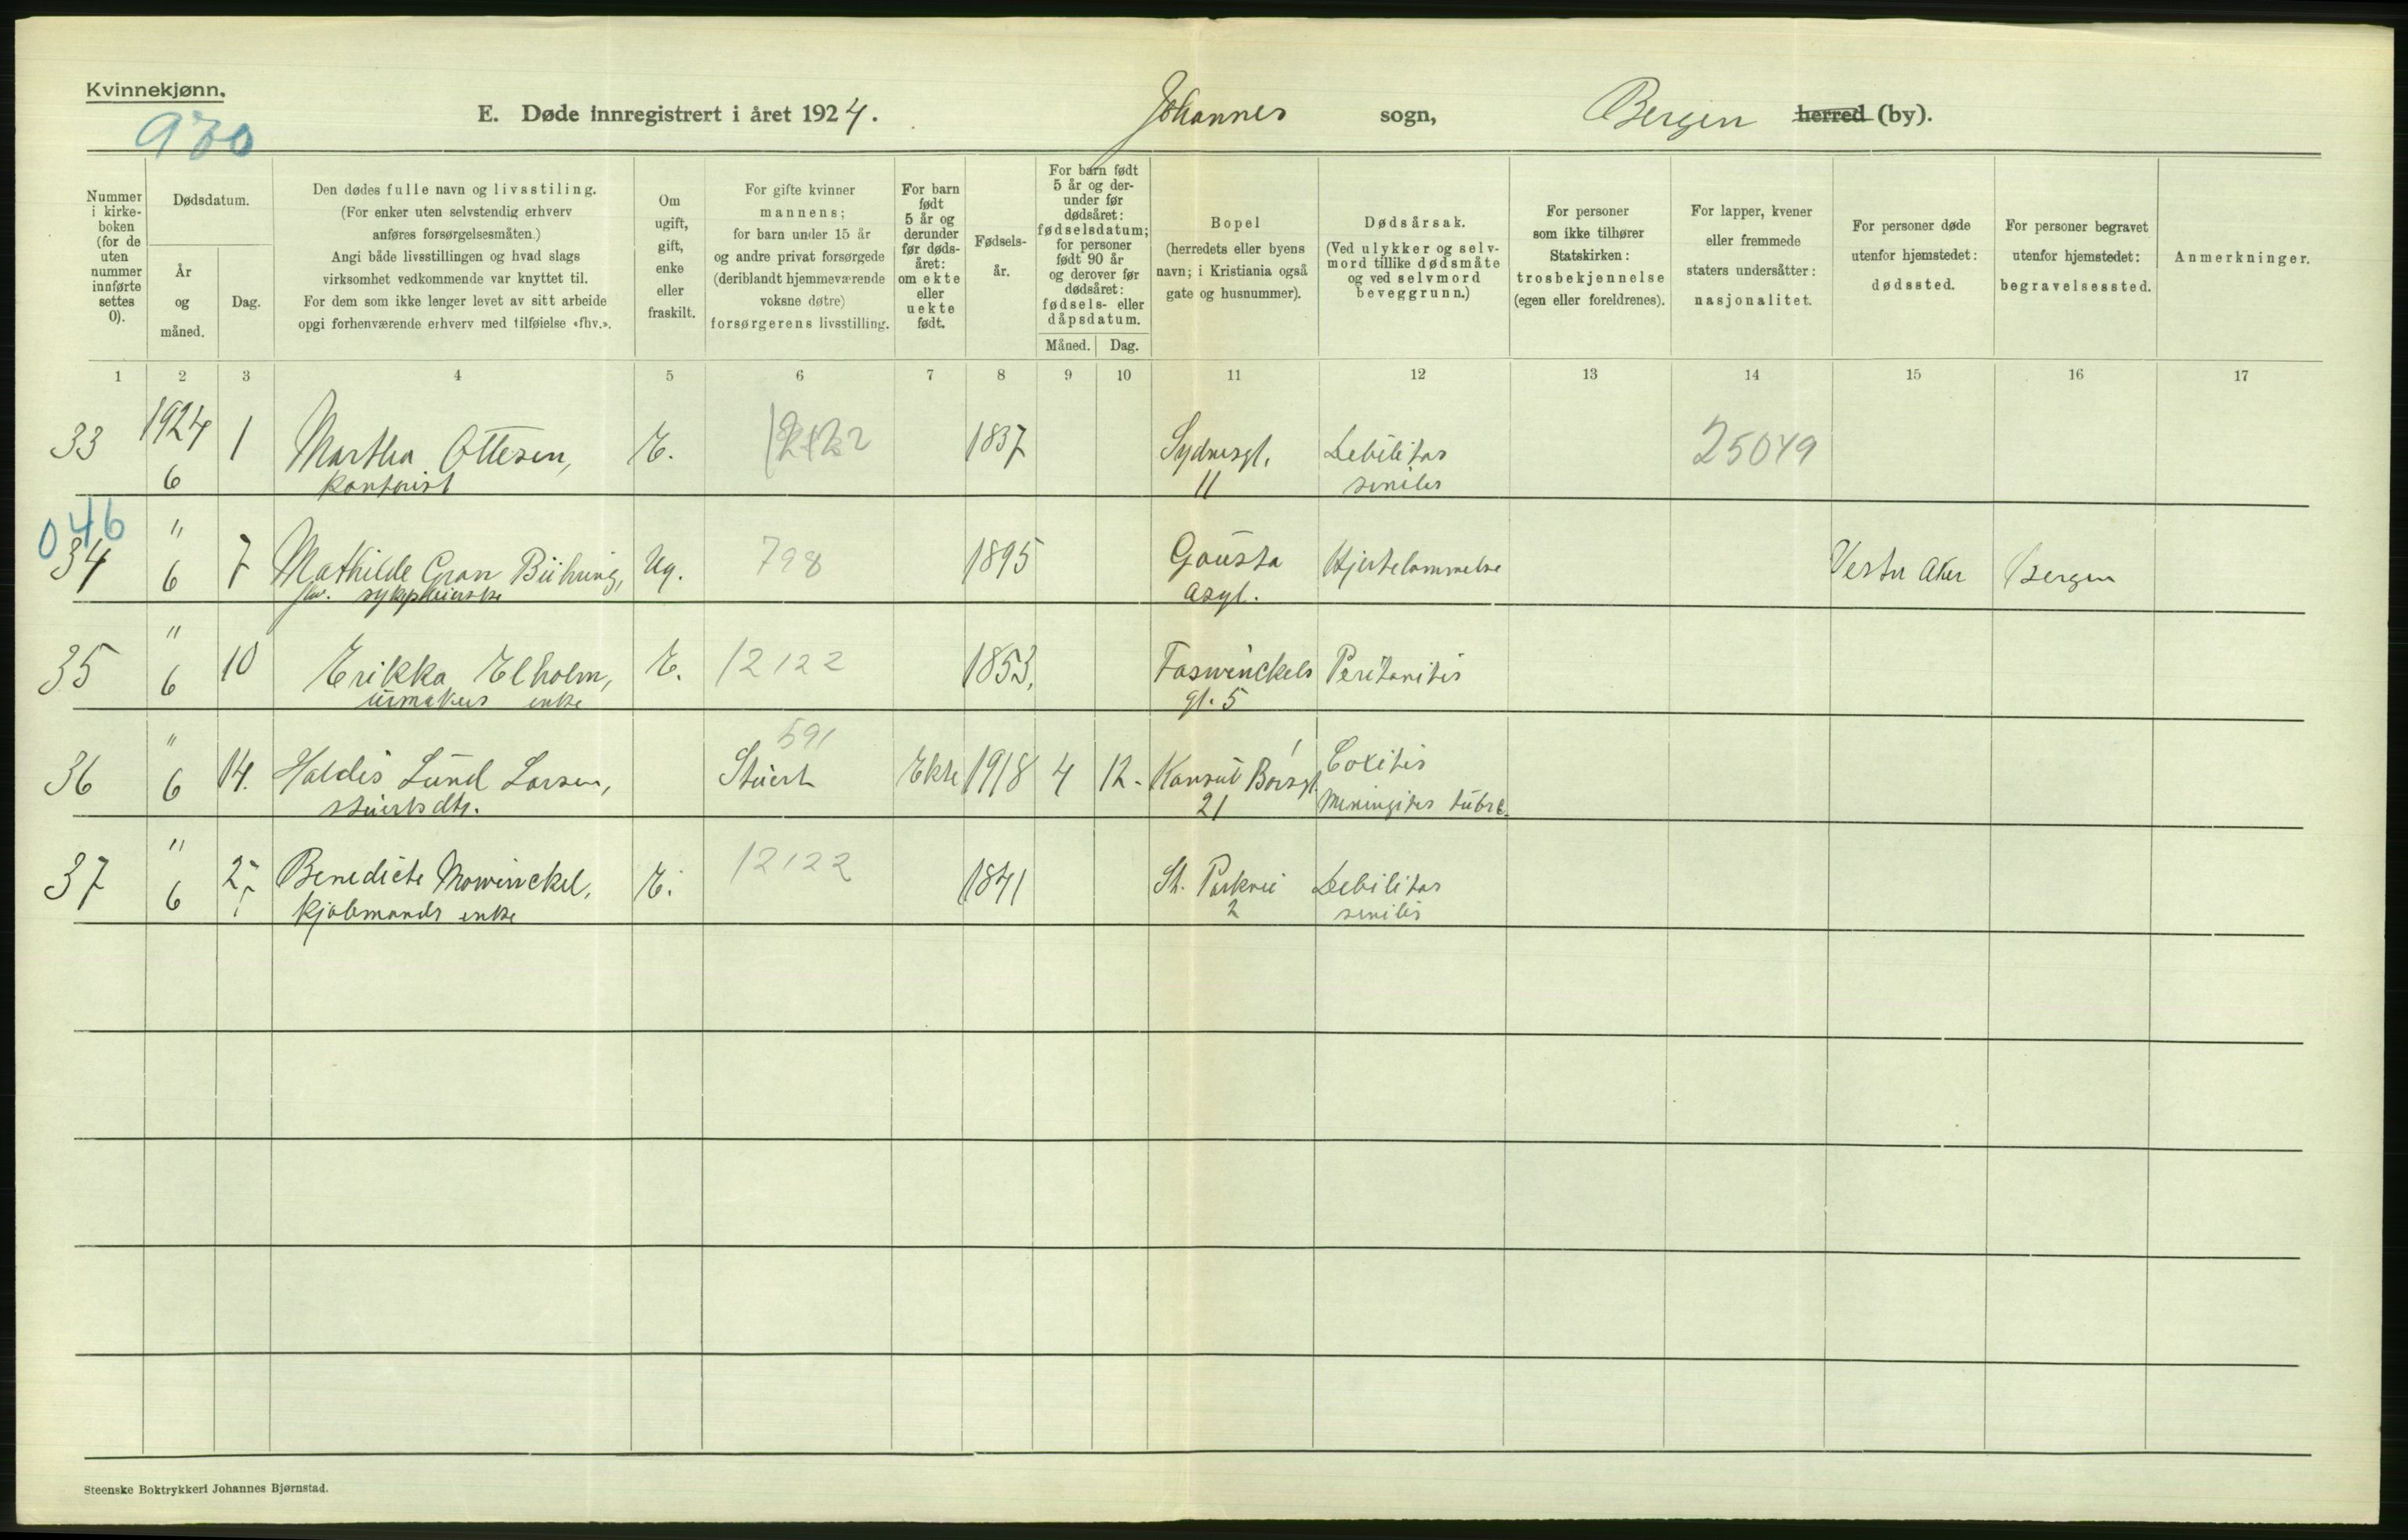 Kvinnekjønn.
970
E. Døde innregistrert i året 1924. Johannes sogn, Bergen herred (by).
Nummer i kirke- boken (for de uten nummer innførte settes 0).
Dødsdatum.
År og måned.
Dag.
Den dødes fulle navn og livsstiling.
(For enker uten selvstendig erhverv
anføres forsørgelsesmåten.)
Angi både livsstillingen og hvad slags
virksomhet vedkommende var knyttet til.
For dem som ikke lenger levet av sitt arbeide
opgi forhenværende erhverv med tilføielse «fhv.».
Om ugift, gift, enke eller fraskilt.
For gifte kvinner
mannens;
for barn under 15 år
og andre privat forsørgede
(deriblandt hjemmeværende
voksne døtre)
forsørgerens livsstilling.
For barn født 5 år og derunder før døds- året: om ekte eller uekte født.
Fødsels- år.
For barn født 5 år og der- under før dødsåret: fødselsdatum; for personer født 90 år og derover før dødsåret: fødsels- eller dåpsdatum.
Måned. Dag.
Bopel
(herredets eller byens
navn; i Kristiania også
gate og husnummer).
Dødsårsak.
(Ved ulykker og selv-
mord tillike dødsmåte
og ved selvmord
beveggrunn.)
For personer
som ikke tilhører
Statskirken:
trosbekjennelse
(egen eller foreldrenes).
For lapper, kvener
eller fremmede
staters undersåtter:
nasjonalitet.
For personer døde
utenfor hjemstedet:
dødssted.
For personer begravet
utenfor hjemstedet:
begravelsessted.
Anmerkninger.
1 2 3 4 5 6 7 8 9 10 11 12 13 14 15 16 17
33 1924 1 Martha Ottesen, E. 1837 Sydnesgt. Debilitas 25049
6 kontorist 11 senilis
046
34 " 7 Mathilde Gran Bühring, Ug. 798 1895 Gausta Hjertelammelse Vestre Aker Bergen
6 fhv. sykepleierske asyl.
35 " 10 Erikka Elholm, E. 12122 1853. Foswinckels Peritonitis
6 urmakers enke gt. 5
591
36 " 14. Haldis Lund Larsen, Stuert Ekte 1918 4 12- Konsul Børsgt. Coxitis
6 stuerts dtr. 21 Meningitis tubrc.
37 " 25 Benedicte Mowinckel, E. 12122 1841 St. Parkvei Debilitas
6 kjøbmands enke 2 senilis
Steenske Boktrykkeri Johannes Bjørnstad.